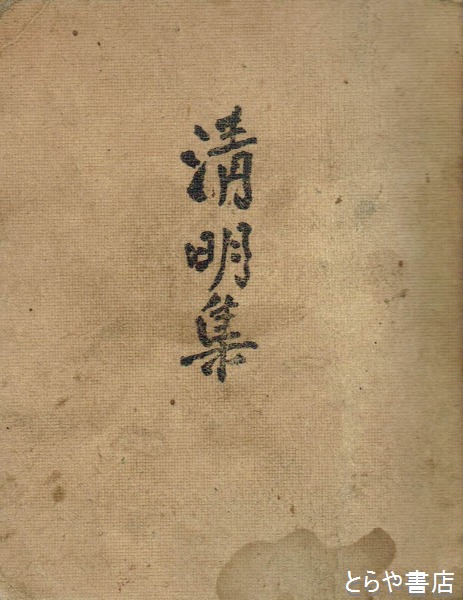 清明集
とらや書店